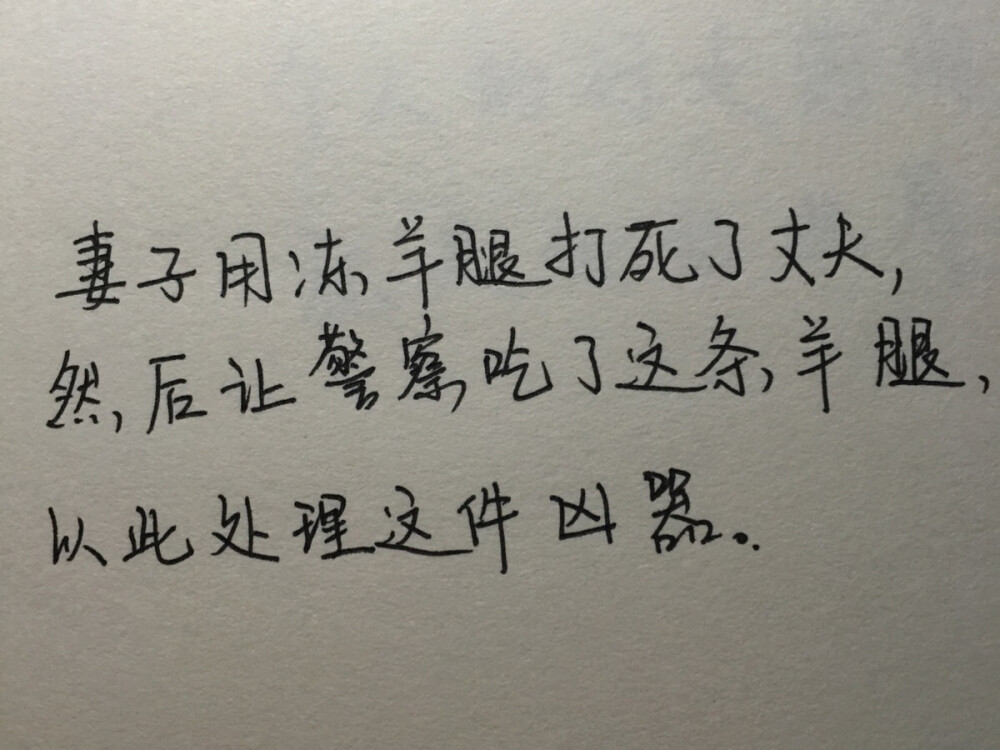 妻子用冻羊腿打死了丈夫,
然后让警察吃了这条羊腿,
以此处理这件凶器。